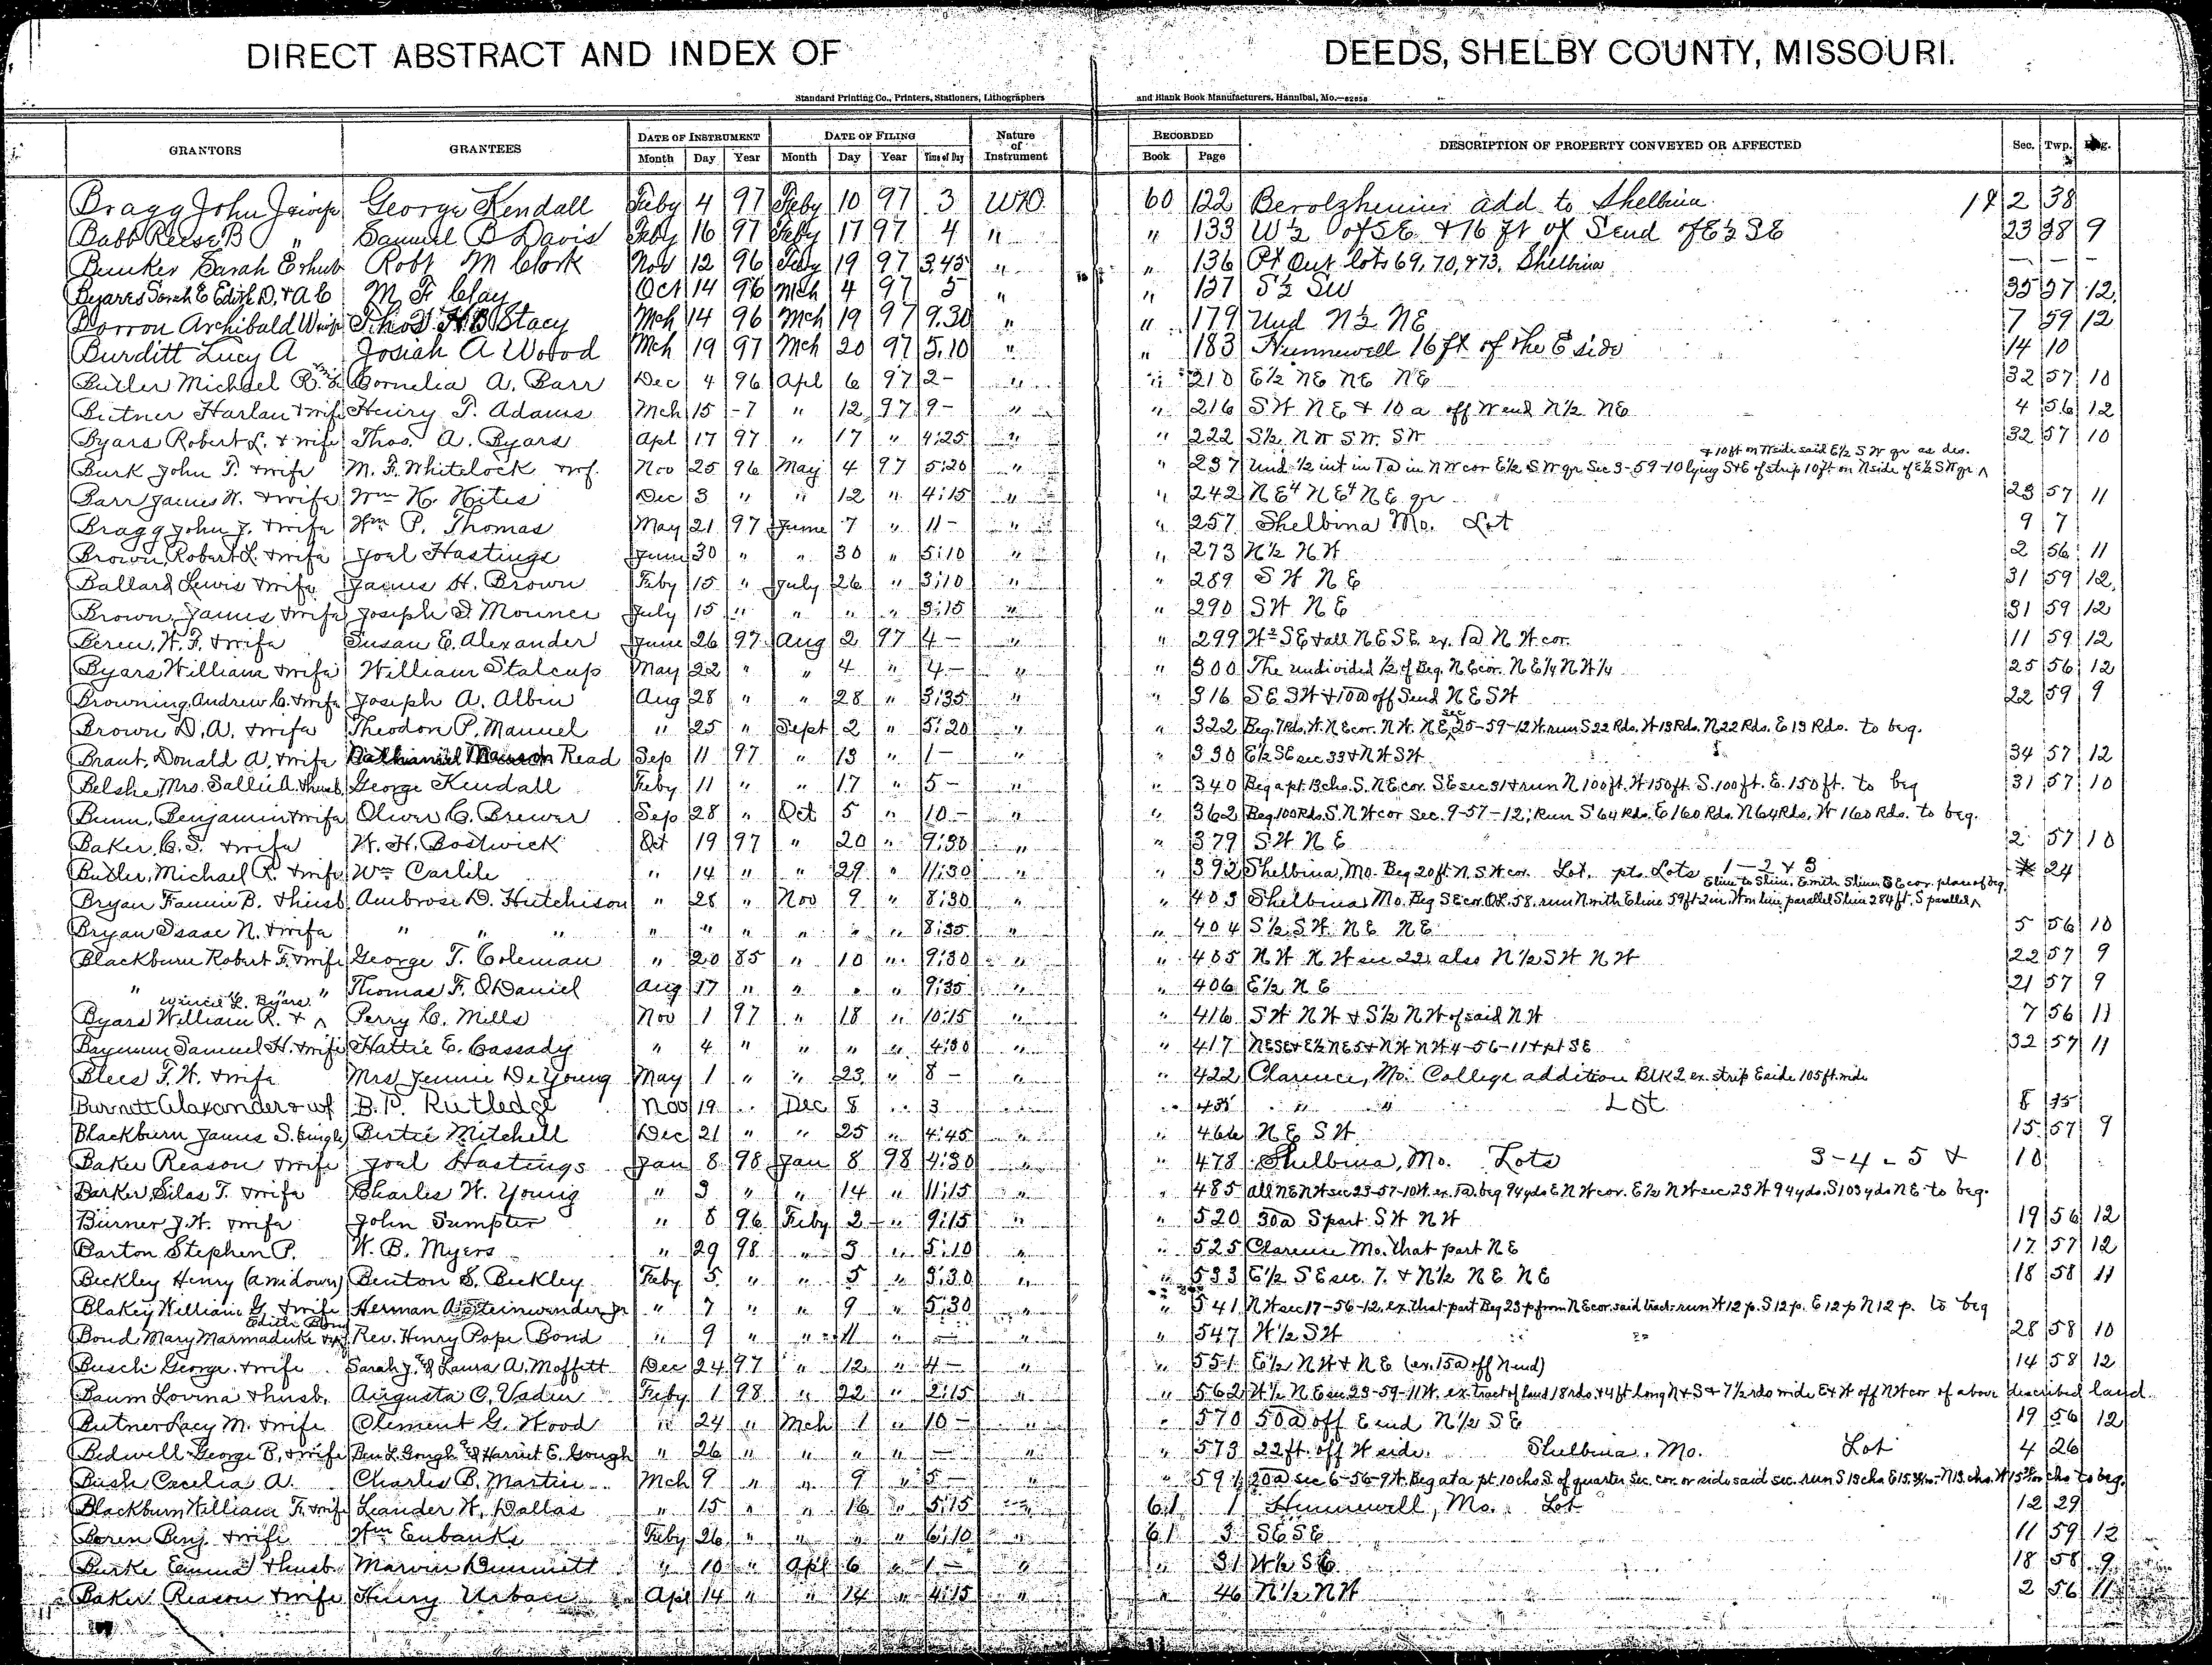 DIRECT ABSTRACT AND INDEX OF DEEDS, SHELBY COUNTY, MISSOURI.
Standard Printing Co., Printers, Stationers, Lithographers and Blank Book Manufacturers, Hannibal, Mo.
GRANTORS GRANTEES DATE OF INSTRUMENT DATE OF FILING Nature of Instrument RECORDED DESCRIPTION OF PROPERTY CONVEYED OR AFFECTED Sec. Twp.
Month Day Year Month Day Year Time of Day Book Page
Bragg John J & wife George Kendall Feby 4 97 Feby 10 97 3 WD 60 122 add to Shelbina 2 38
Babb Reese B " Samuel B Davis Feby 16 97 Feby 17 97 4 " " 133 W½ of SE & 16 ft of S end of E½ SE 23 58 9
Bunker Sarah E & hub Robt M Clark Nov 12 96 Feby 19 97 3.45 " " 136 Pt Out lots 69, 70, & 73, Shelbina — — —
Byars Sarah E Edith D, & A C M F Clay Oct 14 96 Mch 4 97 5 " " 157 S½ SW 35 57 12
Borron Archibald W & wife Stacy Mch 14 96 Mch 19 97 9.30 " " 179 Und N½ NE 7 59 12
Burditt Lucy A Josiah A Wood Mch 19 97 Mch 20 97 5.10 " " 183 Hunnewell 16 ft of the E side 14 10
Butler Michael R. Cornelia A. Barr Dec 4 96 Apl 6 97 2- " " 210 E½ NE NE NE 32 57 10
Bitner Harlan & wife Henry T. Adams Mch 15 -7 " 12 97 9- " " 216 SW NE & 10 a off W end N½ NE 4 56 12
Byars Robert L. & wife Thos. A. Byars Apl 17 97 " 17 " 4:25 " " 222 S½ NW SW. SW 32 57 10
& 10 ft on N side said E½ SW qr as des.
Burk John T. & wife M. F. Whitelock & wf. Nov 25 96 May 4 97 5:20 " " 237 Und ½ int in 1a in NW cor E½ SW qr Sec 3-59-10 lying S & E of strip 10 ft on N side of E½ SW qr ^
Barr James W. & wife Wm H. Hites Dec 3 " " 12 " 4:15 " " 242 NE4 NE4 NE qr 23 57 11
Bragg John J. & wife Wm P. Thomas May 21 97 June 7 " 11- " " 257 Shelbina Mo. Lot 9 7
Brown, Robert L. & wife Joel Hastings June 30 " " 30 " 5:10 " " 273 N½ NW 2 56 11
Ballard Lewis & wife James H. Brown Feby 15 " July 26 " 3:10 " " 289 SW NE 31 59 12
Brown, James & wife Joseph S. Mounce July 15 " " " " 3:15 " " 290 SW NE 31 59 12
W. F. & wife Susan E. Alexander June 26 97 Aug 2 97 4- " " 299 W2 SE & all NE SE ex. 1a NW cor. 11 59 12
Byars William & wife William Stalcup May 22 " " 4 " 4- " " 300 The undivided ½ of Beg. NE cor. NE¼ NW¼ 25 56 12
Browning, Andrew C. & wife Joseph A. Albin Aug 28 " " 28 " 3:35 " " 316 SE SW & 10a off S end NE SW 22 59 9
Brown D. A. & wife Theodon P. Manuel " 25 " Sept 2 " 5:20 " " 322 Beg. 7 Rds. W. NE cor. NW. NE, Sec 25-59-12 W. run S 22 Rds. W 13 Rds. N 22 Rds. E 13 Rds. to beg.
Brant, Donald A. & wife Read Sep 11 97 " 13 " 1- " " 330 E½ SE sec 33 & NW SW 34 57 12
Belshe, Mrs. Sallie A. & husb George Kendall Feby 11 " " 17 " 5- " " 340 Beg a pt. 13 chs. S. NE cor. SE sec 31 & run N 100 ft. W 150 ft. S. 100 ft. E. 150 ft. to beg 31 57 10
Bunn, Benjamin & wife Oliver C. Brewer Sep 28 " Oct 5 " 10- " " 362 Beg. 100 Rds. S. NW cor Sec. 9-57-12; Run S 64 Rds. E 160 Rds. N 64 Rds. W 160 Rds. to beg.
Baker, C. S. & wife W. H. Bostwick Oct 19 97 " 20 " 9:30 " " 379 SW NE 2 57 10
Butler, Michael R. & wife Wm Carlile " 14 " " 29 " 11:30 " " 392 Shelbina, Mo. Beg 20 ft N. SW cor. Lot, pts Lots 1-2 & 3 24
Bryan Fannie B. & husb Ambrose D. Hutchison " 28 " Nov 9 " 8:30 " " 403 Shelbina Mo. Beg SE cor. OL. 58, run N with E line 59 ft 2 in. W on line parallel S line 284 ft, S parallel ^
Bryan Isaac N. & wife " " " " " " " " " 8:35 " " 404 S½ SW NE NE 5 56 10
Blackburn Robert F. & wife George T. Coleman " 20 85 " 10 " 9:30 " " 405 NW NW sec 22, also N½ SW NW 22 57 9
" " " Thomas F. ODaniel Aug 17 " " " " 9:35 " " 406 E½ NE 21 57 9
Byars William R. & ^ Perry C. Mills Nov 1 97 " 18 " 10:15 " " 416 SW NW & S½ NW of said NW 7 56 11
Samuel H. & wife Hattie E. Cassady " 4 " " " " 4:30 " " 417 NE SE & E½ NE 5 & NW NW 4-56-11 & pt SE 32 57 11
Blees F. W. & wife Mrs Jennie DeYoung May 1 " " 23 " 8- " " 422 Clarence, Mo. College addition Blk 2 ex. strip E side 105 ft. wide
Burnett Alaxander & wf B. P. Rutledge Nov 19 " Dec 8 " 3 " " " " Lot 8
Blackburn James S. (single) Birtie Mitchell Dec 21 " " 25 " 4:45 " " 466 NE SW 15 57 9
Baker Reason & wife Joel Hastings Jan 8 98 Jan 8 98 4:30 " " 478 Shelbina, Mo. Lots 3-4-5 & 10
Barker, Silas T. & wife Charles W. Young " 3 " " 14 " 11:15 " " 485 all NE NW sec 23-57-10 W. ex. 1a. beg 94 yds E NW cor. E½ NW sec 23 W 94 yds. S 103 yds NE to beg.
Burner J. W. & wife John Sumpter " 8 96 Feby 2 " 9:15 " " 520 30a S part SW NW 19 56 12
Barton Stephen P. W. B. Myers " 29 98 " 3 " 5:10 " " 525 Clarence Mo. that part NE 17 57 12
Beckley Henry (a widower) Benton S. Beckley Feby 5 " " 5 " 3:30 " " 533 E½ SE sec. 7. & N½ NE NE 18 58 11
Blakey William G. & wife Herman A. Steinwender Jr " 7 " " 9 " 5:30 " " 541 NW sec 17-56-12. ex. that part Beg 23 p from NE cor. said tract run W 12 p. S 12 p. E 12 p N 12 p. to beg
Bond Mary Marmaduke Rev. Henry Pope Bond " 9 " " 11 " — " " 547 W½ SW 28 58 10
Busch George & wife Sarah J. & Laura A. Moffett Dec 24 97 " 12 " 4- " " 551 E½ NW & NE (ex. 15a off N end) 14 58 12
Baum Lovina & husb. Augusta C. Vaden Feby 1 98 " 22 " 2:15 " " 562 W½ NE sec 23-59-11 W. ex. tract of land 18 rds. & 4 ft long N & S & 7½ rds wide E & W off NW cor of above described land
Butner Lacy M. & wife Clement G. Wood " 24 " Mch 1 " 10- " " 570 50a off E end N½ SE 19 56 12
Bedwell George B. & wife Ben L. Gough & Harriet E. Gough " 26 " " " " — " " 573 22 ft. off W side. Shelbina, Mo. Lot 4 26
Bush Cecelia A. Charles B. Martin Mch 9 " " 9 " 5- " " 591 20a sec 6-56-9 W. Beg at a pt. 10 chs S. of quarter sec. cor. said sec. run S 13 chs to beg.
Blackburn William F. & wife Leander W. Dallas " 15 " " 16 " 5:15 " 61 1 Hunnewell, Mo. Lot 12 29
Boren Benj. & wife Wm Eubanks Feby 26 " " " " 6:10 " 61 3 SE SE 11 59 12
Burke Emma & husb Marvin Dimmitt " 10 " Apl 6 " 1- " " 31 W½ SE 18 58 9
Baker Reason & wife Henry Urban Apl 14 " " 14 " 4:15 " " 46 N½ NW 2 56 11